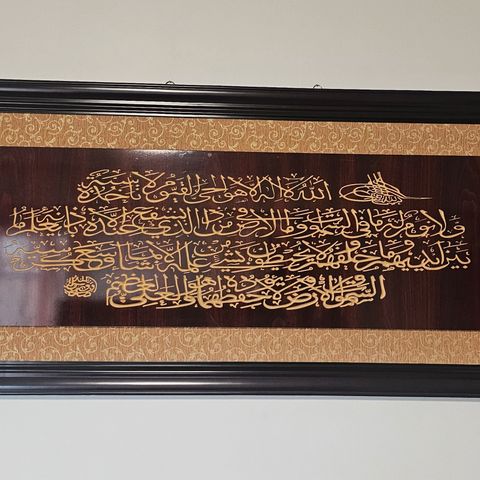 بسم الله الرحمن الرحيم الله لا إله إلا هو الحي القيوم لا تأخذه سنة
ولا نوم له ما في السموات وما في الأرض من ذا الذي يشفع عنده إلا بإذنه يعلم ما
بين أيديهم وما خلفهم ولا يحيطون بشيء من علمه إلا بما شاء وسع كرسيه
السموات والأرض ولا يؤده حفظهما وهو العلي العظيم